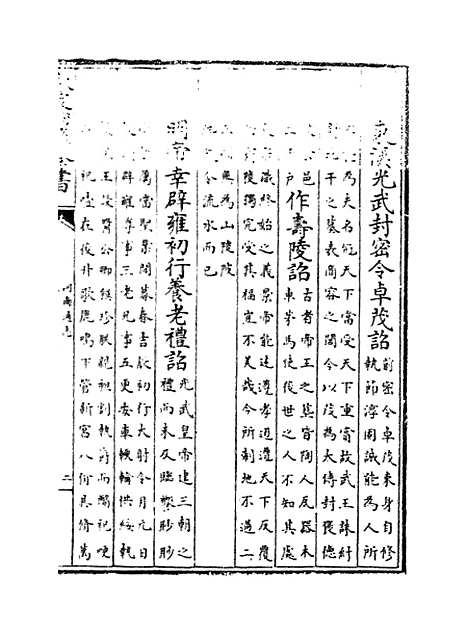 東漢光武封密令卓茂詔前密令卓茂束身自修
執節淳固誠能為人所
為夫名冠天下當受天下重賞故武王誅紂
干之墓表商容之閭今以茂為太傅封褒德
邑
戶作壽陵詔古者帝王之葬皆陶人瓦器木
車茅馬使後世之人不知其處
識終始之義景帝能述遵孝道遭天下反覆
陵獨完受其福豈不美哉今所制地不過二
無為山陵陂
令流水而已
明帝幸辟雍初行養老禮詔光武皇帝建三朝之
禮而未及臨饗眇眇
屬當聖業間暮春吉辰初行大射令月元日
辟雍尊事三老兄事五更安車軟輪供綏執
王設醬公卿饌珍朕親袒割執爵而酳祝哽
祝噎在後升歌鹿鳴下管新宮八佾具脩萬
書
河南通志
二